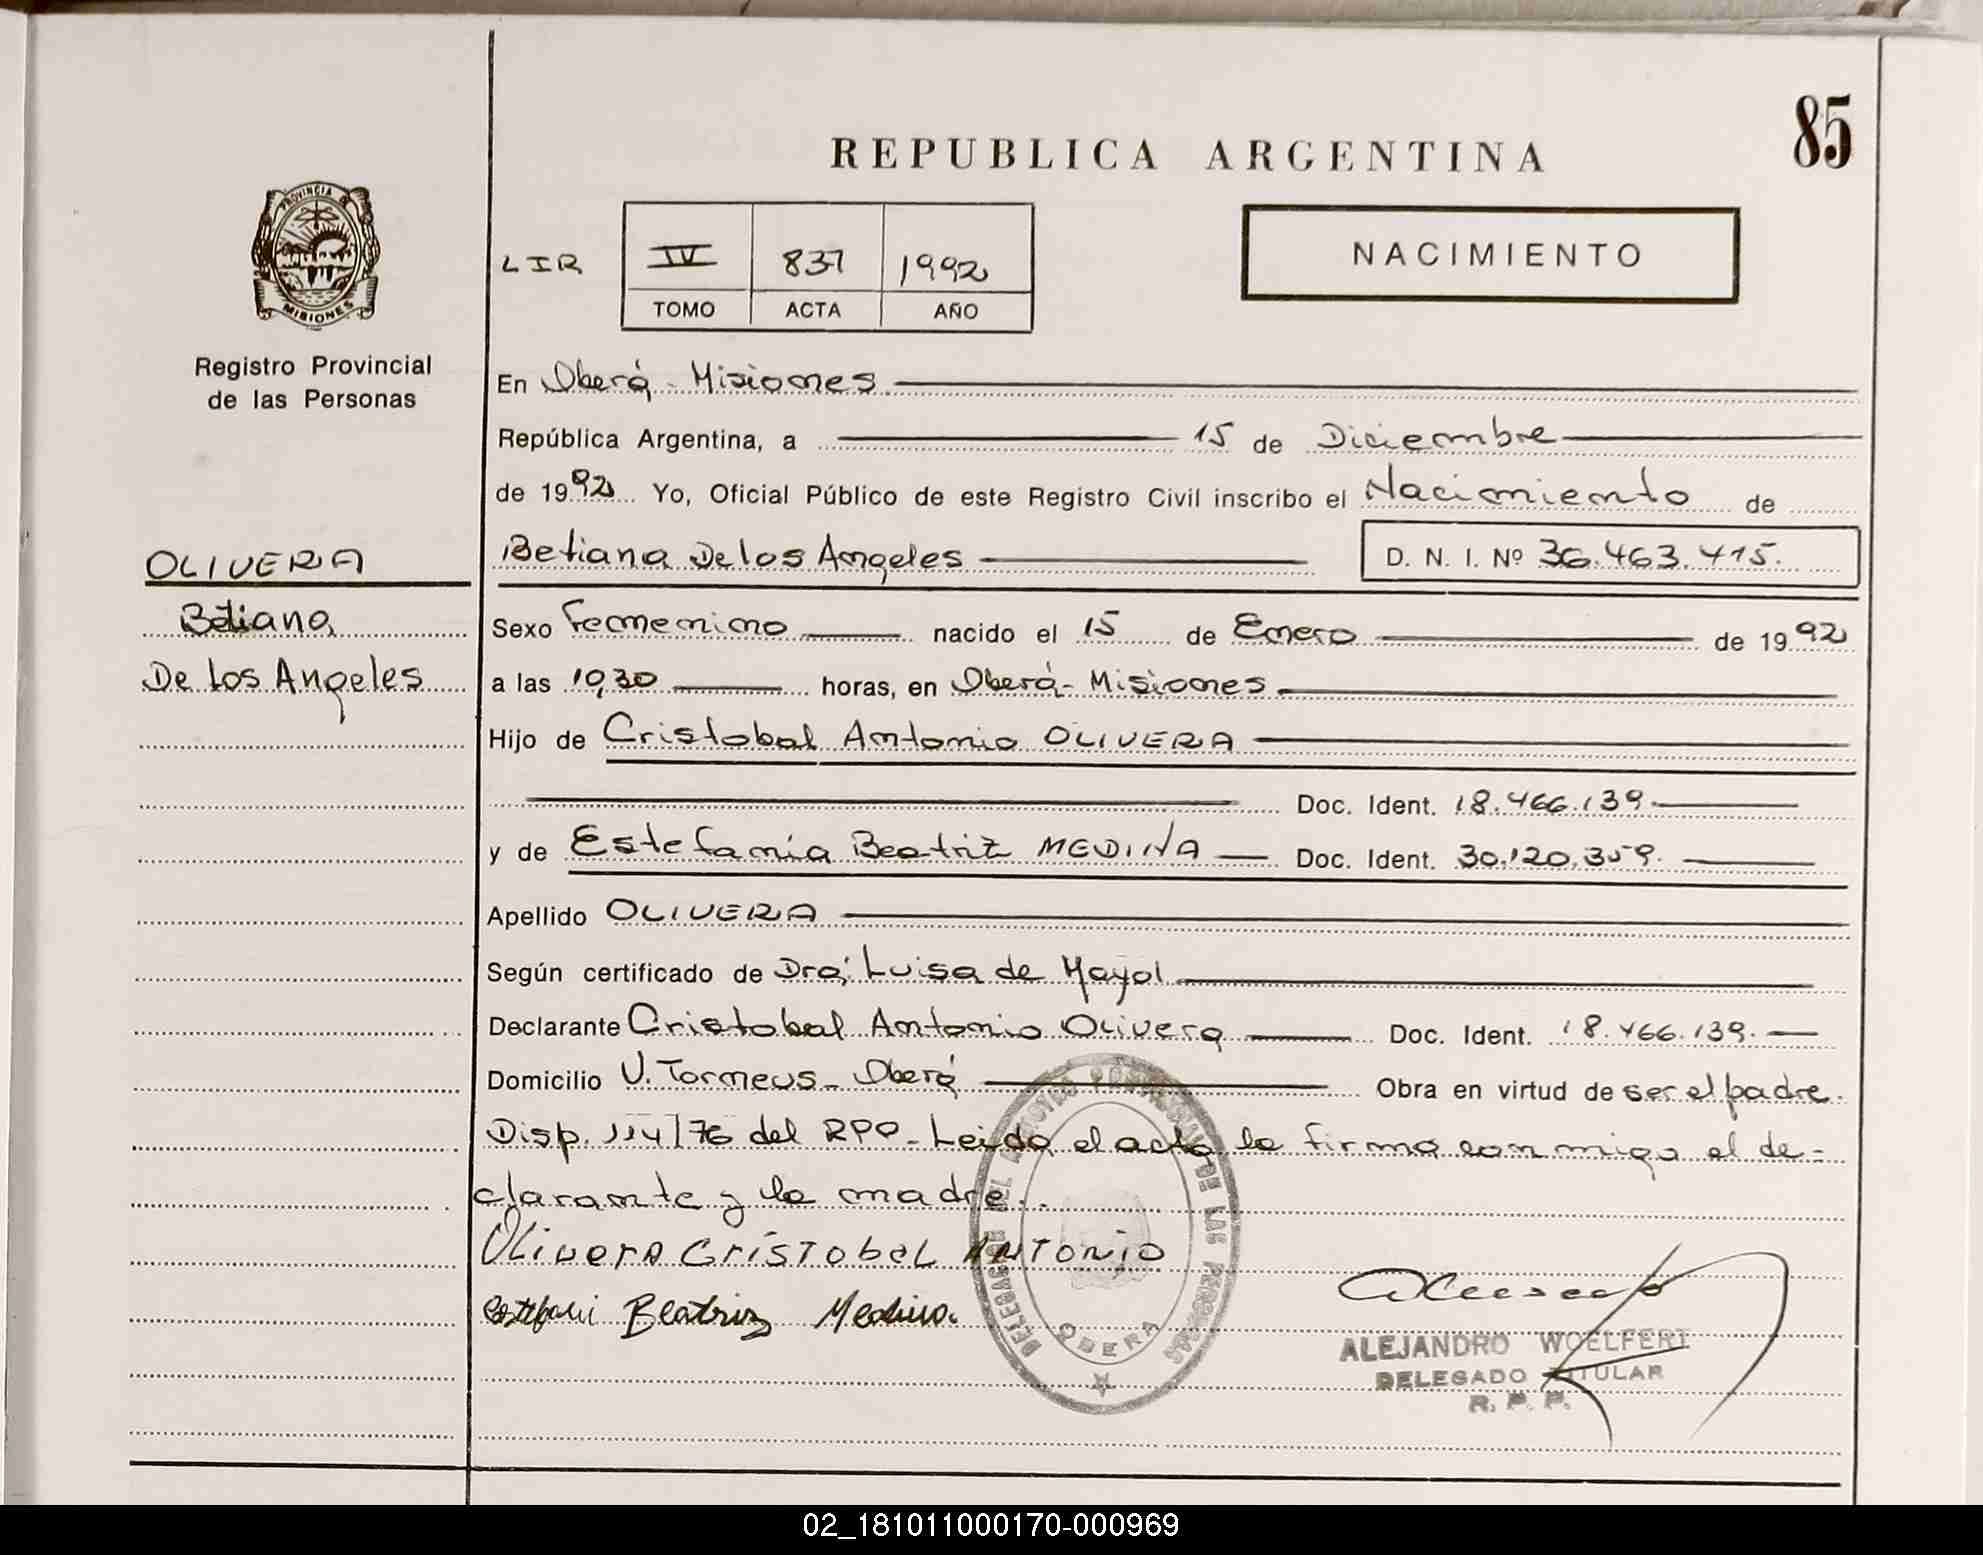 85
REPUBLICA ARGENTINA
PROVINCIA DE
MISIONES
Registro Provincial
de las Personas
LIR
IV 837 1992
TOMO ACTA AÑO
NACIMIENTO
En Oberá - Misiones
República Argentina, a 15 de Diciembre
de 1992 Yo, Oficial Público de este Registro Civil inscribo el Nacimiento de
OLIVERA
Betiana De los Angeles D. N. I. Nº 36.463.415.
Betiana
De los Angeles
Sexo Femenino nacido el 15 de Enero de 1992
a las 10,30 horas, en Oberá - Misiones
Hijo de Cristobal Antonio OLIVERA
Doc. Ident. 18.466.139.
y de Estefania Beatriz MEDINA Doc. Ident. 30.120.359.
Apellido OLIVERA
Según certificado de Dra; Luisa de Mayol
Declarante Cristobal Antonio Olivera Doc. Ident. 18.466.139.
Domicilio V. Tormeus - Oberá Obra en virtud de ser el padre.
Disp. 114/76 del RPP - Leida el acta la firma conmigo el de-
clarante y la madre.
OLiverA CrisTobaL ANTONio
Beatriz Medina.
DE LAS PERSONAS
OBERA
ALEJANDRO WOELFERT
DELEGADO TITULAR
R. P. P.
02_181011000170-000969